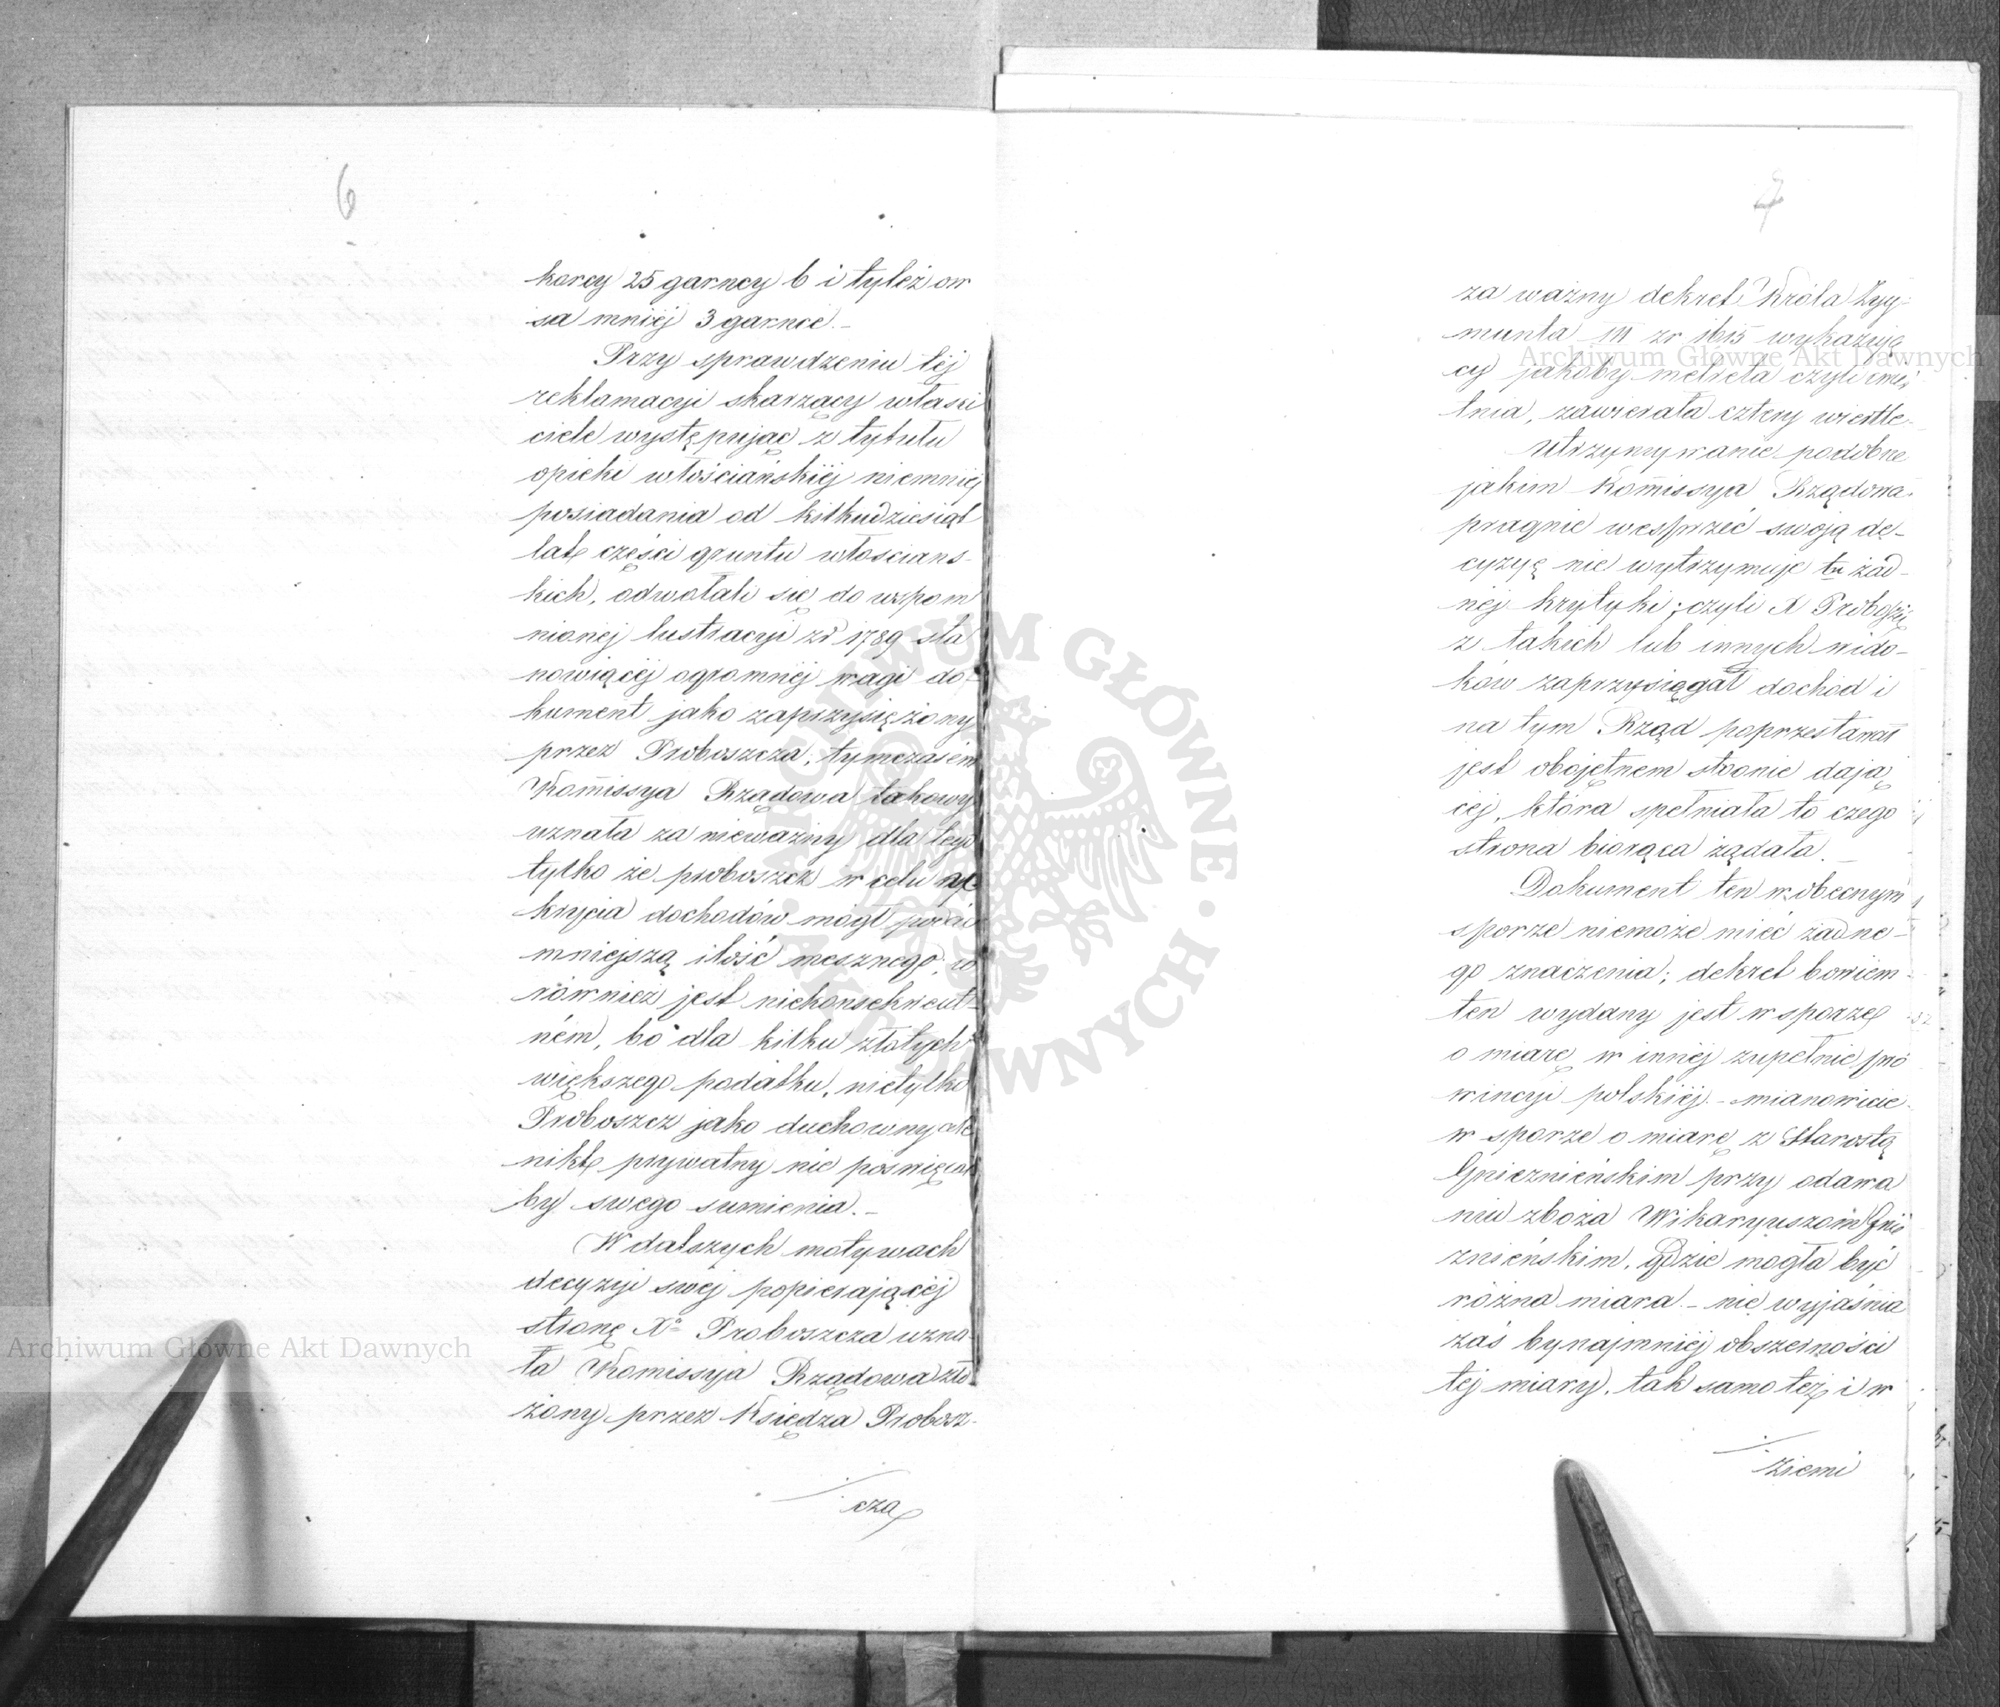 6
korcy 25 garncy 6 i tyleż ow
sa mniéj 3 garnce.–
Przy sprawdzeniu téj
reklamacyi skarzący właści
ciele występując z tytułu
opieki włościańskiéj niemniéj
posiadania od kilkudziesiąt
lat części gruntu włościans-
kich, odwołali się do wspom
nionéj lustracyi zr 1789 sta
nowiącéj ogromnéj wagi do-
kument jako zaprzysiężony
przez Proboszcza, tymczasem
Kommissya Rządowa takowy
uznała za nieważny dla tego
tylko że proboszcz w celu
krycia dochodów mógł podać
mniejszą ilość mesznego, co
również jest niekonsekwent-
ném, bo dla kilku złotych
większego podatku, nietylko
Proboszcz jako duchowny ale
nikt prywatny nie poświęcał
by swego sumienia.–
W dalszych motywach
decyzyi swéj popierającéj
stronę Xa Proboszcza uzna-
ła Kommissya Rządowa zło
żony przez Księdza Probosz-
cza
7
za ważny dekret Króla Zyg-
munta III zr 1615 wykazują
cy jakoby metreta czyli ćwier
tnia, zawierała cztery wiertle.
Utrzymywanie podobne
jakim Kommissya Rządowa
pragnie wesprzeć swoją de-
cyzyę nie wytrzymuje tu żad-
néj krytyki; czyli X Proboszcz
z takich lub innych wido-
ków zaprzysięgał dochód i
na tym Rząd poprzestawał
jest obojętnem stronie dają
céj, która spełniała to czego
strona biorąca żądała.–
Dokument ten w obecnym
sporze niemoże mieć żadne-
go znaczenia; dekret bowiem
ten wydany jest w sporze
o miarę w innéj zupełnie pro
wincyi polskiéj – mianowicie
w sporze o miarę z Starostą
Gnieznieńskim przy odawa
niu zboża Wikaryuszom Gnie
znieńskim, gdzie mogła być
różna miara – nie wyjaśnia
zaś bynajmniéj obszerności
téj miary, tak samo też i w
ziemi
Archiwum Główne Akt Dawnych
Archiwum Główne Akt Dawnych
ARCHIWUM GŁÓWNE AKT DAWNYCH